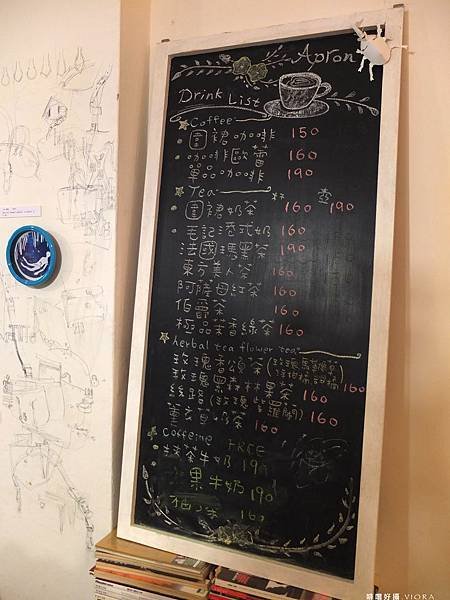 Apron
Drink List
Coffee
圍裙咖啡 150
咖啡歐蕾 160
單品咖啡 190
Tea
杯 壺
圍裙奶茶 160 190
毛記港式奶 160
法國瑪黑茶 190
東方美人茶 160
阿薩姆紅茶 160
伯爵茶 160
極品茉香綠茶 160
herbal tea flower tea
玫瑰香頌茶
玫瑰黑森林果茶 160
絲路(玫瑰 紫羅蘭) 160
薰衣草奶茶 160
caffeine FREE
抹茶牛奶 190
果牛奶 190
柚子茶 160
嘀咕好攝.VIORA